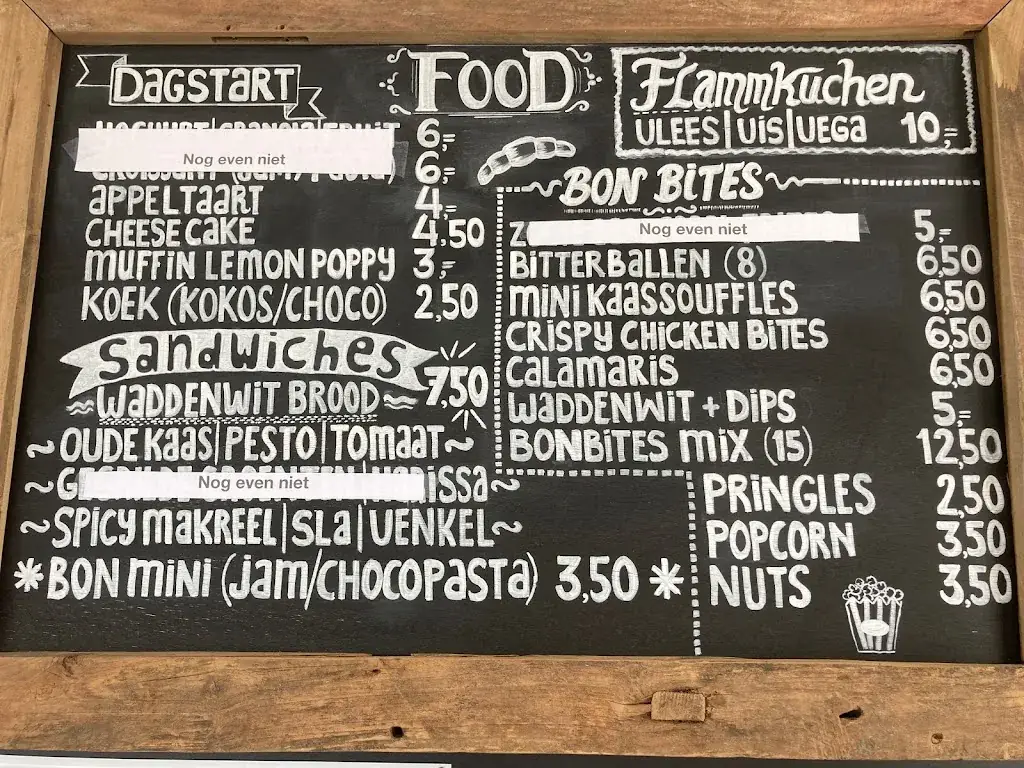 DAGSTART
6,=
Nog even niet
6,=
APPELTAART 4,=
CHEESECAKE 4,50
MUFFIN LEMON POPPY 3,=
KOEK (KOKOS/CHOCO) 2,50
Sandwiches
WADDENWIT BROOD 7,50
~OUDE KAAS|PESTO|TOMAAT~
Nog even niet
~SPICY MAKREEL|SLA|VENKEL~
*BON MINI (JAM/CHOCOPASTA) 3,50 *
FOOD
FLammKuchen
VLEES|VIS|VEGA 10,=
BON BITES
Nog even niet 5,=
BITTERBALLEN (8) 6,50
MINI KAASSOUFFLES 6,50
CRISPY CHICKEN BITES 6,50
CALAMARIS 6,50
WADDENWIT + DIPS 5,=
BONBITES MIX (15) 12,50
PRINGLES 2,50
POPCORN 3,50
NUTS 3,50